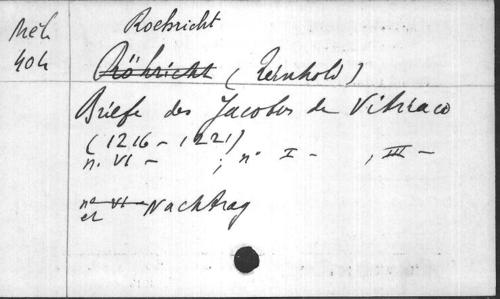 Roehricht
Méh
40h
Röhricht (Reinhold)
Briefe des Jacobus de Vitriaco
(1216-1221)
n. VI - ; n° I - , III -
n° VI - Nachtrag
et